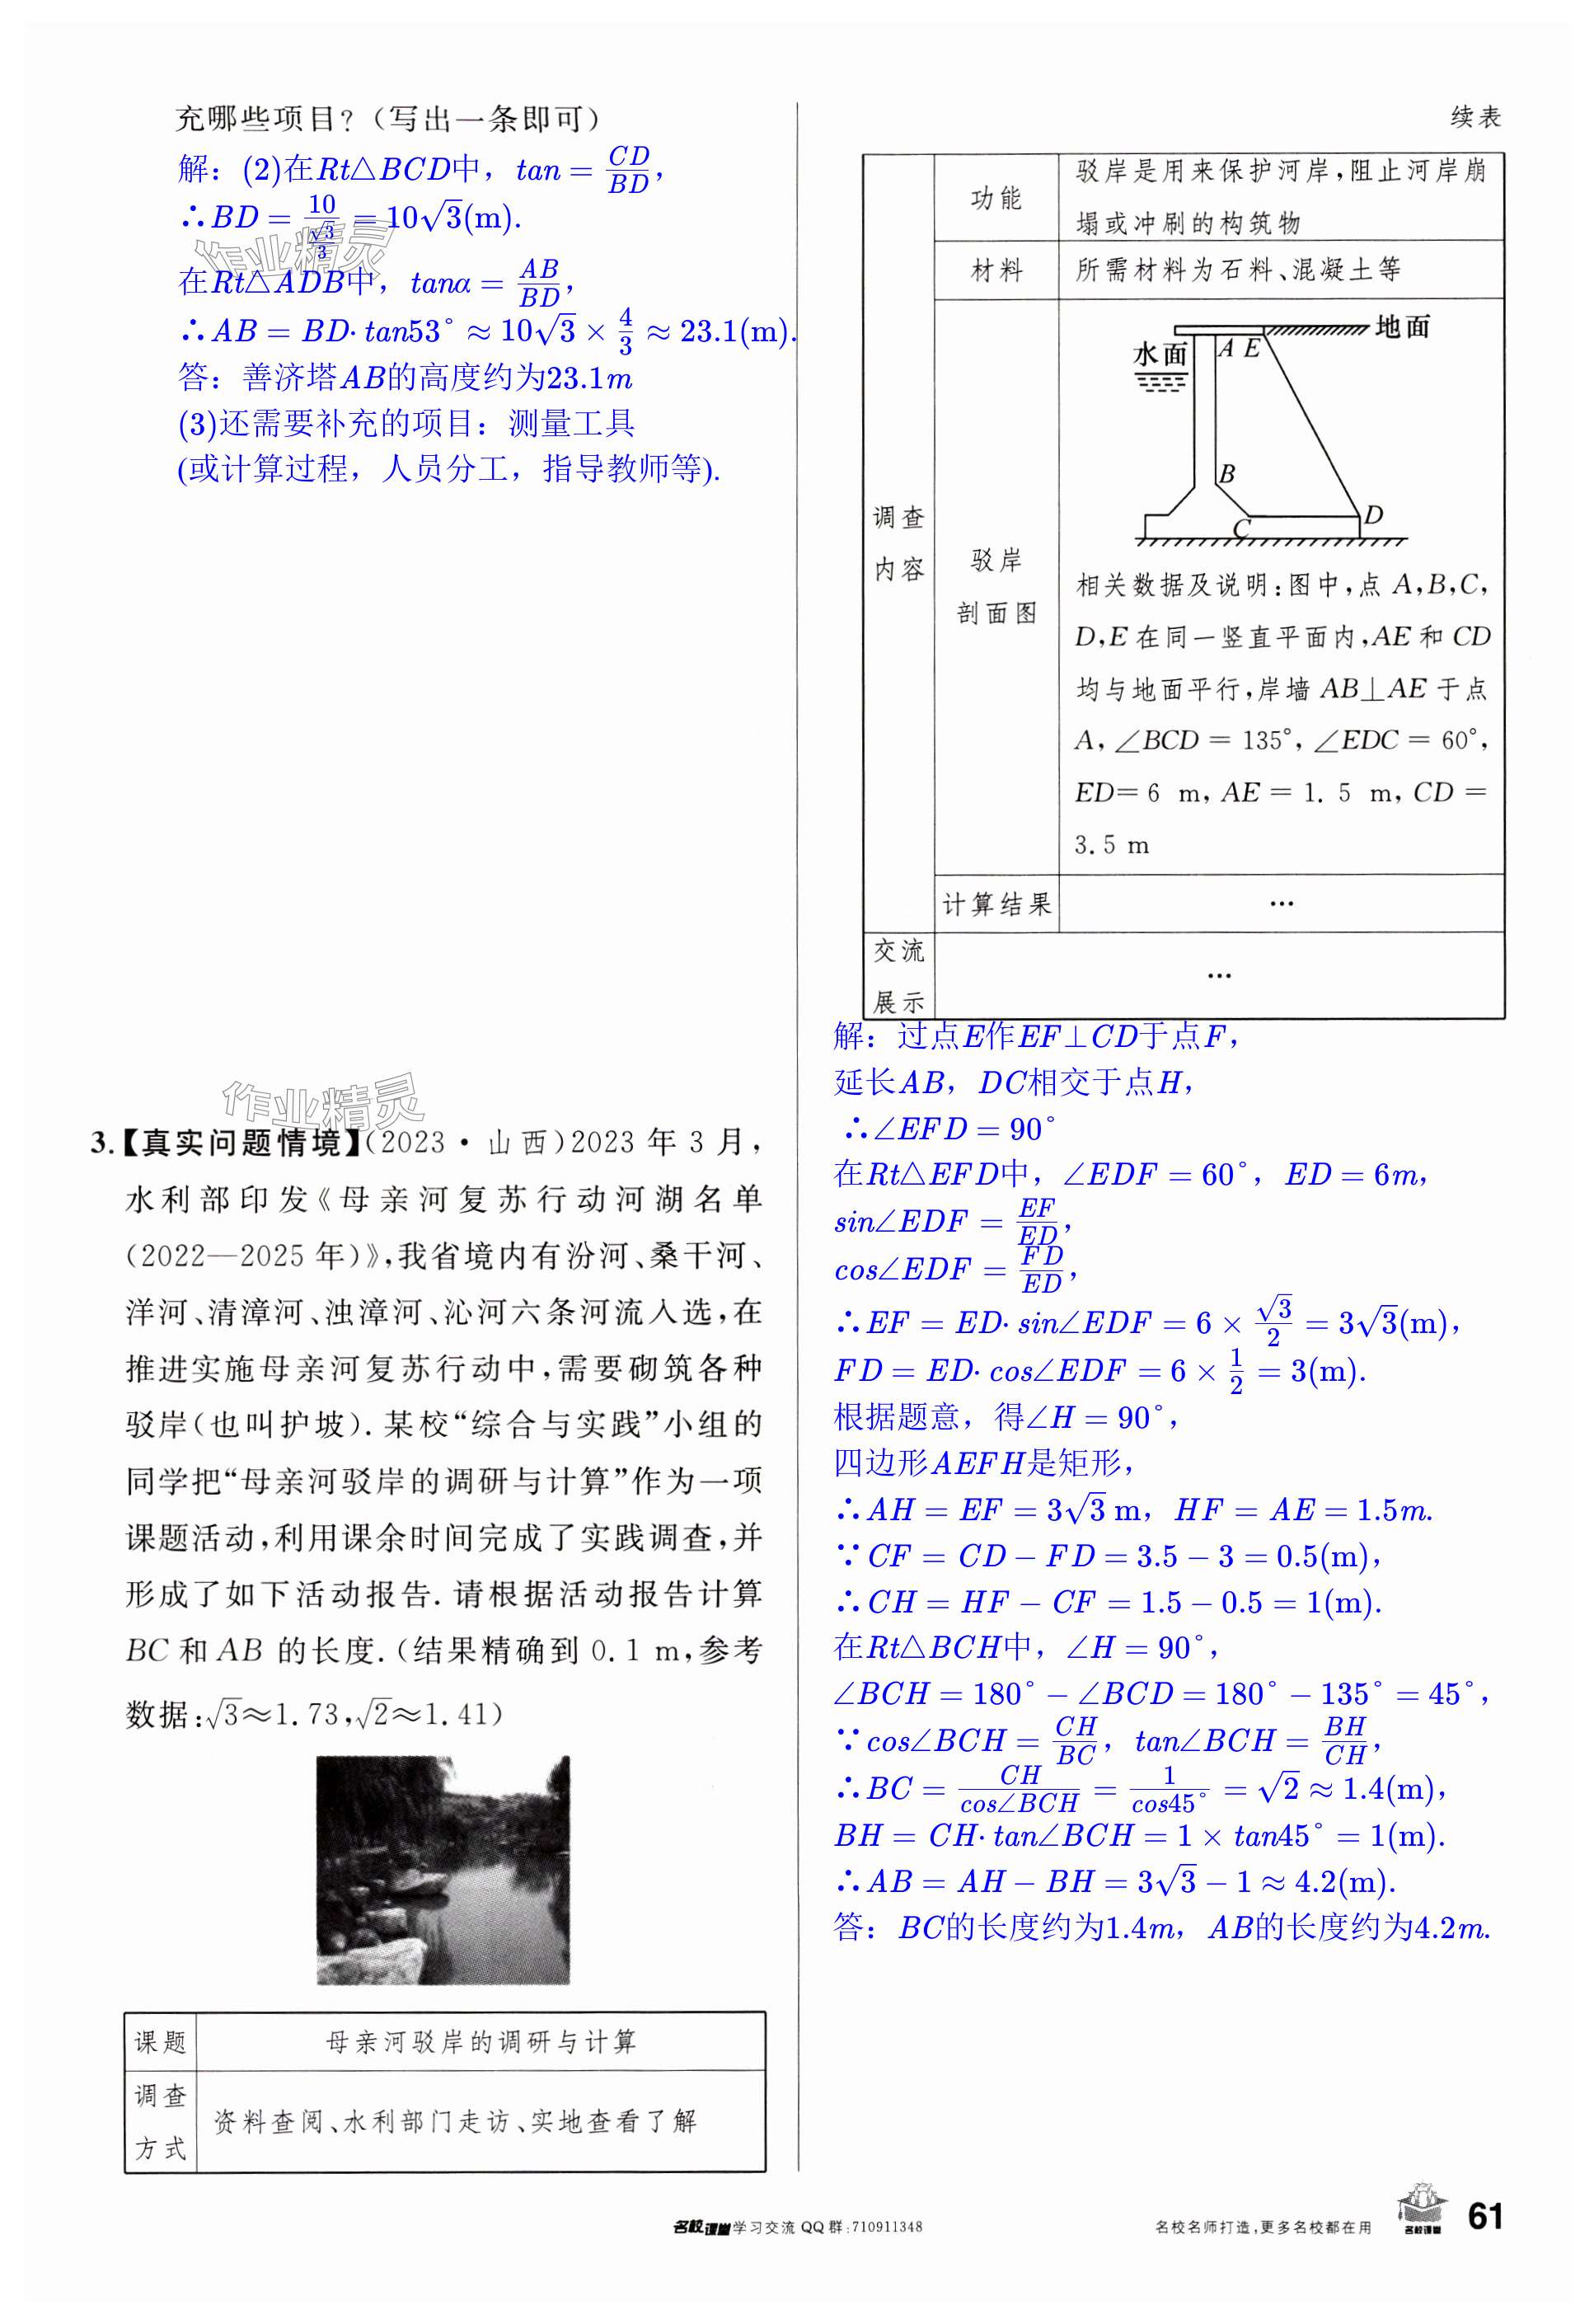 充哪些项目?(写出一条即可)
解：(2)在Rt△BCD中，tan = CD/BD，
∴BD = 10/(√3/3) = 10√3(m).
在Rt△ADB中，tanα = AB/BD，
∴AB = BD·tan53° ≈ 10√3 × 4/3 ≈ 23.1(m).
答：善济塔AB的高度约为23.1m
(3)还需要补充的项目：测量工具
(或计算过程，人员分工，指导教师等).
作业精灵
作业精灵
3.【真实问题情境】(2023·山西)2023 年 3 月,
水利部印发《母亲河复苏行动河湖名单
(2022—2025 年)》,我省境内有汾河、桑干河、
洋河、清漳河、浊漳河、沁河六条河流入选,在
推进实施母亲河复苏行动中,需要砌筑各种
驳岸(也叫护坡). 某校“综合与实践”小组的
同学把“母亲河驳岸的调研与计算”作为一项
课题活动,利用课余时间完成了实践调查,并
形成了如下活动报告. 请根据活动报告计算
BC 和 AB 的长度.(结果精确到 0.1 m,参考
数据:√3≈1.73,√2≈1.41)
课题
母亲河驳岸的调研与计算
调查
方式
资料查阅、水利部门走访、实地查看了解
续表
调查
内容
功能
驳岸是用来保护河岸,阻止河岸崩
塌或冲刷的构筑物
材料
所需材料为石料、混凝土等
驳岸
剖面图
地面
水面
A E
B
C
D
相关数据及说明:图中,点 A,B,C,
D,E 在同一竖直平面内,AE 和 CD
均与地面平行,岸墙 AB⊥AE 于点
A, ∠BCD = 135°, ∠EDC = 60°,
ED= 6 m, AE = 1.5 m, CD =
3.5 m
计算结果
…
交流
展示
…
解：过点E作EF⊥CD于点F，
延长AB，DC相交于点H，
∴∠EFD = 90°
在Rt△EFD中，∠EDF = 60°，ED = 6m，
sin∠EDF = EF/ED，
cos∠EDF = FD/ED，
∴EF = ED·sin∠EDF = 6 × √3/2 = 3√3(m)，
FD = ED·cos∠EDF = 6 × 1/2 = 3(m).
根据题意，得∠H = 90°，
四边形AEFH是矩形，
∴AH = EF = 3√3 m，HF = AE = 1.5m.
∵CF = CD − FD = 3.5 − 3 = 0.5(m)，
∴CH = HF − CF = 1.5 − 0.5 = 1(m).
在Rt△BCH中，∠H = 90°，
∠BCH = 180° − ∠BCD = 180° − 135° = 45°，
∵cos∠BCH = CH/BC，tan∠BCH = BH/CH，
∴BC = CH/cos∠BCH = 1/cos45° = √2 ≈ 1.4(m)，
BH = CH·tan∠BCH = 1 × tan45° = 1(m).
∴AB = AH − BH = 3√3 − 1 ≈ 4.2(m).
答：BC的长度约为1.4m，AB的长度约为4.2m.
名校课堂学习交流 QQ 群:710911348
名校名师打造,更多名校都在用
名校课堂
61